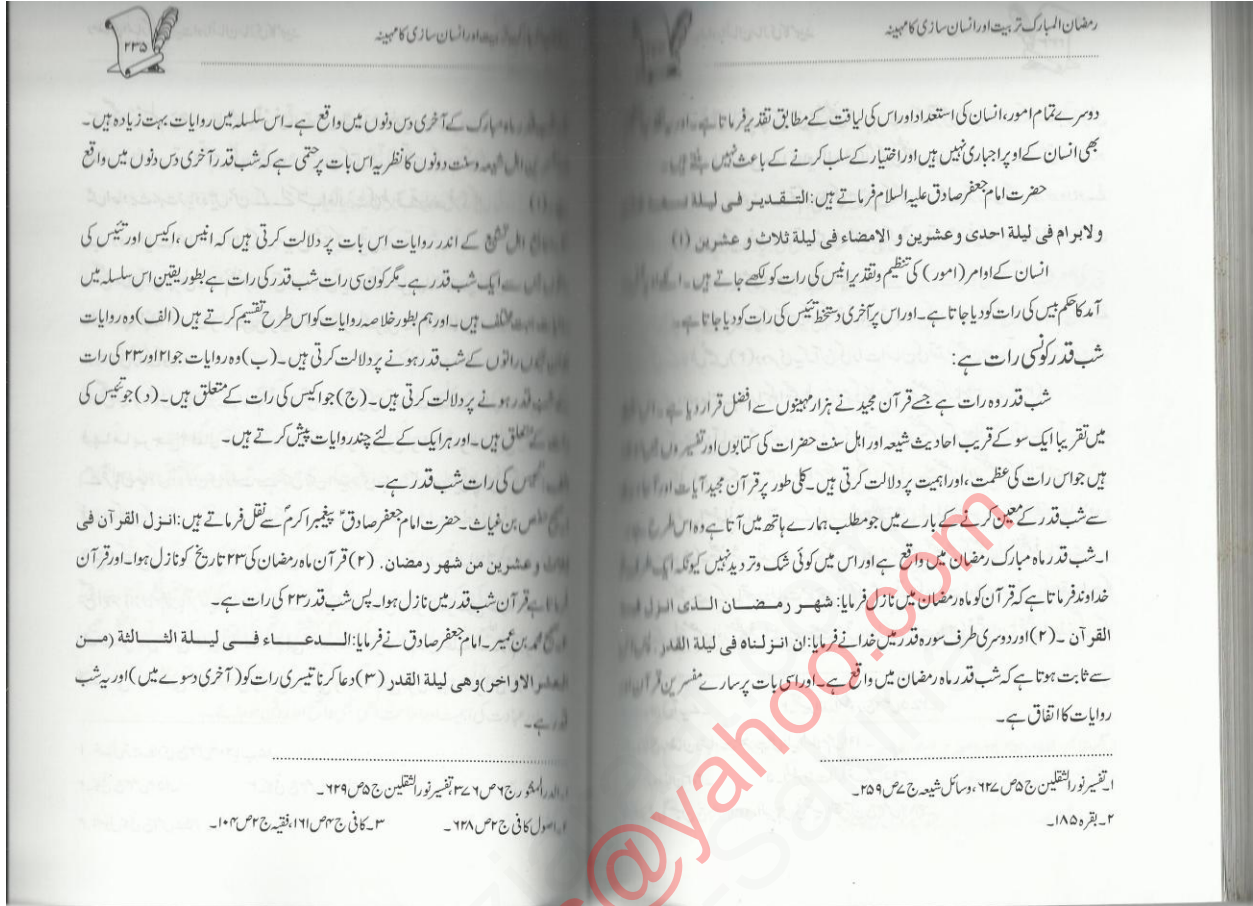 رمضان المبارک تربیت اور انسان سازی کا مہینہ
دوسرے تمام امور، انسان کی استعداد اور اس کی لیاقت کے مطابق تقدیر فرماتا ہے۔
بھی انسان کے اوپر اجباری نہیں ہیں اور اختیار کے سلب کرنے کے باعث نہیں بنتے ہیں۔
حضرت امام جعفر صادق علیہ السلام فرماتے ہیں: التقدیر فی لیلة
ولابرام فی لیلة احدی وعشرین و الامضاء فی لیلة ثلاث و عشرین (۱)
انسان کے اوامر (امور) کی تنظیم و تقدیر انیس کی رات کو لکھے جاتے ہیں۔
آمد کا حکم بیس کی رات کو دیا جاتا ہے۔ اور اس پر آخری دستخط تئیس کی رات کو دیا جاتا ہے۔
شب قدر کونسی رات ہے:
شب قدر وہ رات ہے جسے قرآن مجید نے ہزار مہینوں سے افضل قرار دیا ہے۔
میں تقریبا ایک سو کے قریب احادیث شیعہ اور اہل سنت حضرات کی کتابوں اور تفسیروں میں
ہیں جو اس رات کی عظمت، اور اہمیت پر دلالت کرتی ہیں۔ کلی طور پر قرآن مجید آیات اور
سے شب قدر کے معین کرنے کے بارے میں جو مطلب ہمارے ہاتھ میں آتا ہے وہ اس طرح ہے
۱۔ شب قدر ماہ مبارک رمضان میں واقع ہے اور اس میں کوئی شک و تردید نہیں کیونکہ ایک طرف
خداوند فرماتا ہے کہ قرآن کو ماہ رمضان میں نازل فرمایا: شهر رمضان الذی انزل فیه
القرآن ۔(۲) اور دوسری طرف سورہ قدر میں خدا نے فرمایا: ان انزلناه فی لیلة القدر۔
سے ثابت ہوتا ہے کہ شب قدر ماہ رمضان میں واقع ہے۔ اور اسی بات پر سارے مفسرین قرآن اور
روایات کا اتفاق ہے۔
۱۔ تفسیر نور الثقلین ج ۵ ص ۶۲۷، وسائل شیعہ ج ۷ ص ۲۵۹۔
۲۔ بقرہ ۱۸۵۔
۲۳۵
اور انسان سازی کا مہینہ
ماہ مبارک کے آخری دس دنوں میں واقع ہے۔ اس سلسلہ میں روایات بہت زیادہ ہیں۔
اہل شیعہ و سنت دونوں کا نظریہ اس بات پر حتمی ہے کہ شب قدر آخری دس دنوں میں واقع
(۱)
اہل تشیع کے اندر روایات اس بات پر دلالت کرتی ہیں کہ انیس، اکیس اور تئیس کی
سے ایک شب قدر ہے۔ مگر کون سی رات شب قدر کی رات ہے بطور یقین اس سلسلہ میں
مختلف ہیں۔ اور ہم بطور خلاصہ روایات کو اس طرح تقسیم کرتے ہیں (الف) وہ روایات
راتوں کے شب قدر ہونے پر دلالت کرتی ہیں۔ (ب) وہ روایات جو ۲۱ اور ۲۳ کی رات
قدر ہونے پر دلالت کرتی ہیں۔ (ج) جو اکیس کی رات کے متعلق ہیں۔ (د) جو تئیس کی
کے متعلق ہیں۔ اور ہر ایک کے لئے چند روایات پیش کرتے ہیں۔
کی رات شب قدر ہے
بن غیاث۔ حضرت امام جعفر صادقؑ پیغمبر اکرمؐ سے نقل فرماتے ہیں: انزل القرآن فی
ثلاث وعشرین من شهر رمضان. (۲) قرآن ماہ رمضان کی ۲۳ تاریخ کو نازل ہوا۔ اور قرآن
ہے قرآن شب قدر میں نازل ہوا۔ پس شب قدر ۲۳ کی رات ہے۔
محمد بن عمیر۔ امام جعفر صادق نے فرمایا: الدعاء فی لیلة الثالثة (من
العشر الاواخر) وهی لیلة القدر (۳) دعا کرنا تیسری رات کو (آخری دسوے میں) اور یہ شب
قدر ہے۔
الدرالمنثور ج ۶ ص ۳۷۶، تفسیر نور الثقلین ج ۵ ص ۶۲۹۔
اصول کافی ج ۲ ص ۶۲۸۔ ۳۔ کافی ج ۴ ص ۱۶۱، فقیہ ج ۲ ص ۱۰۴۔
@yahoo.com